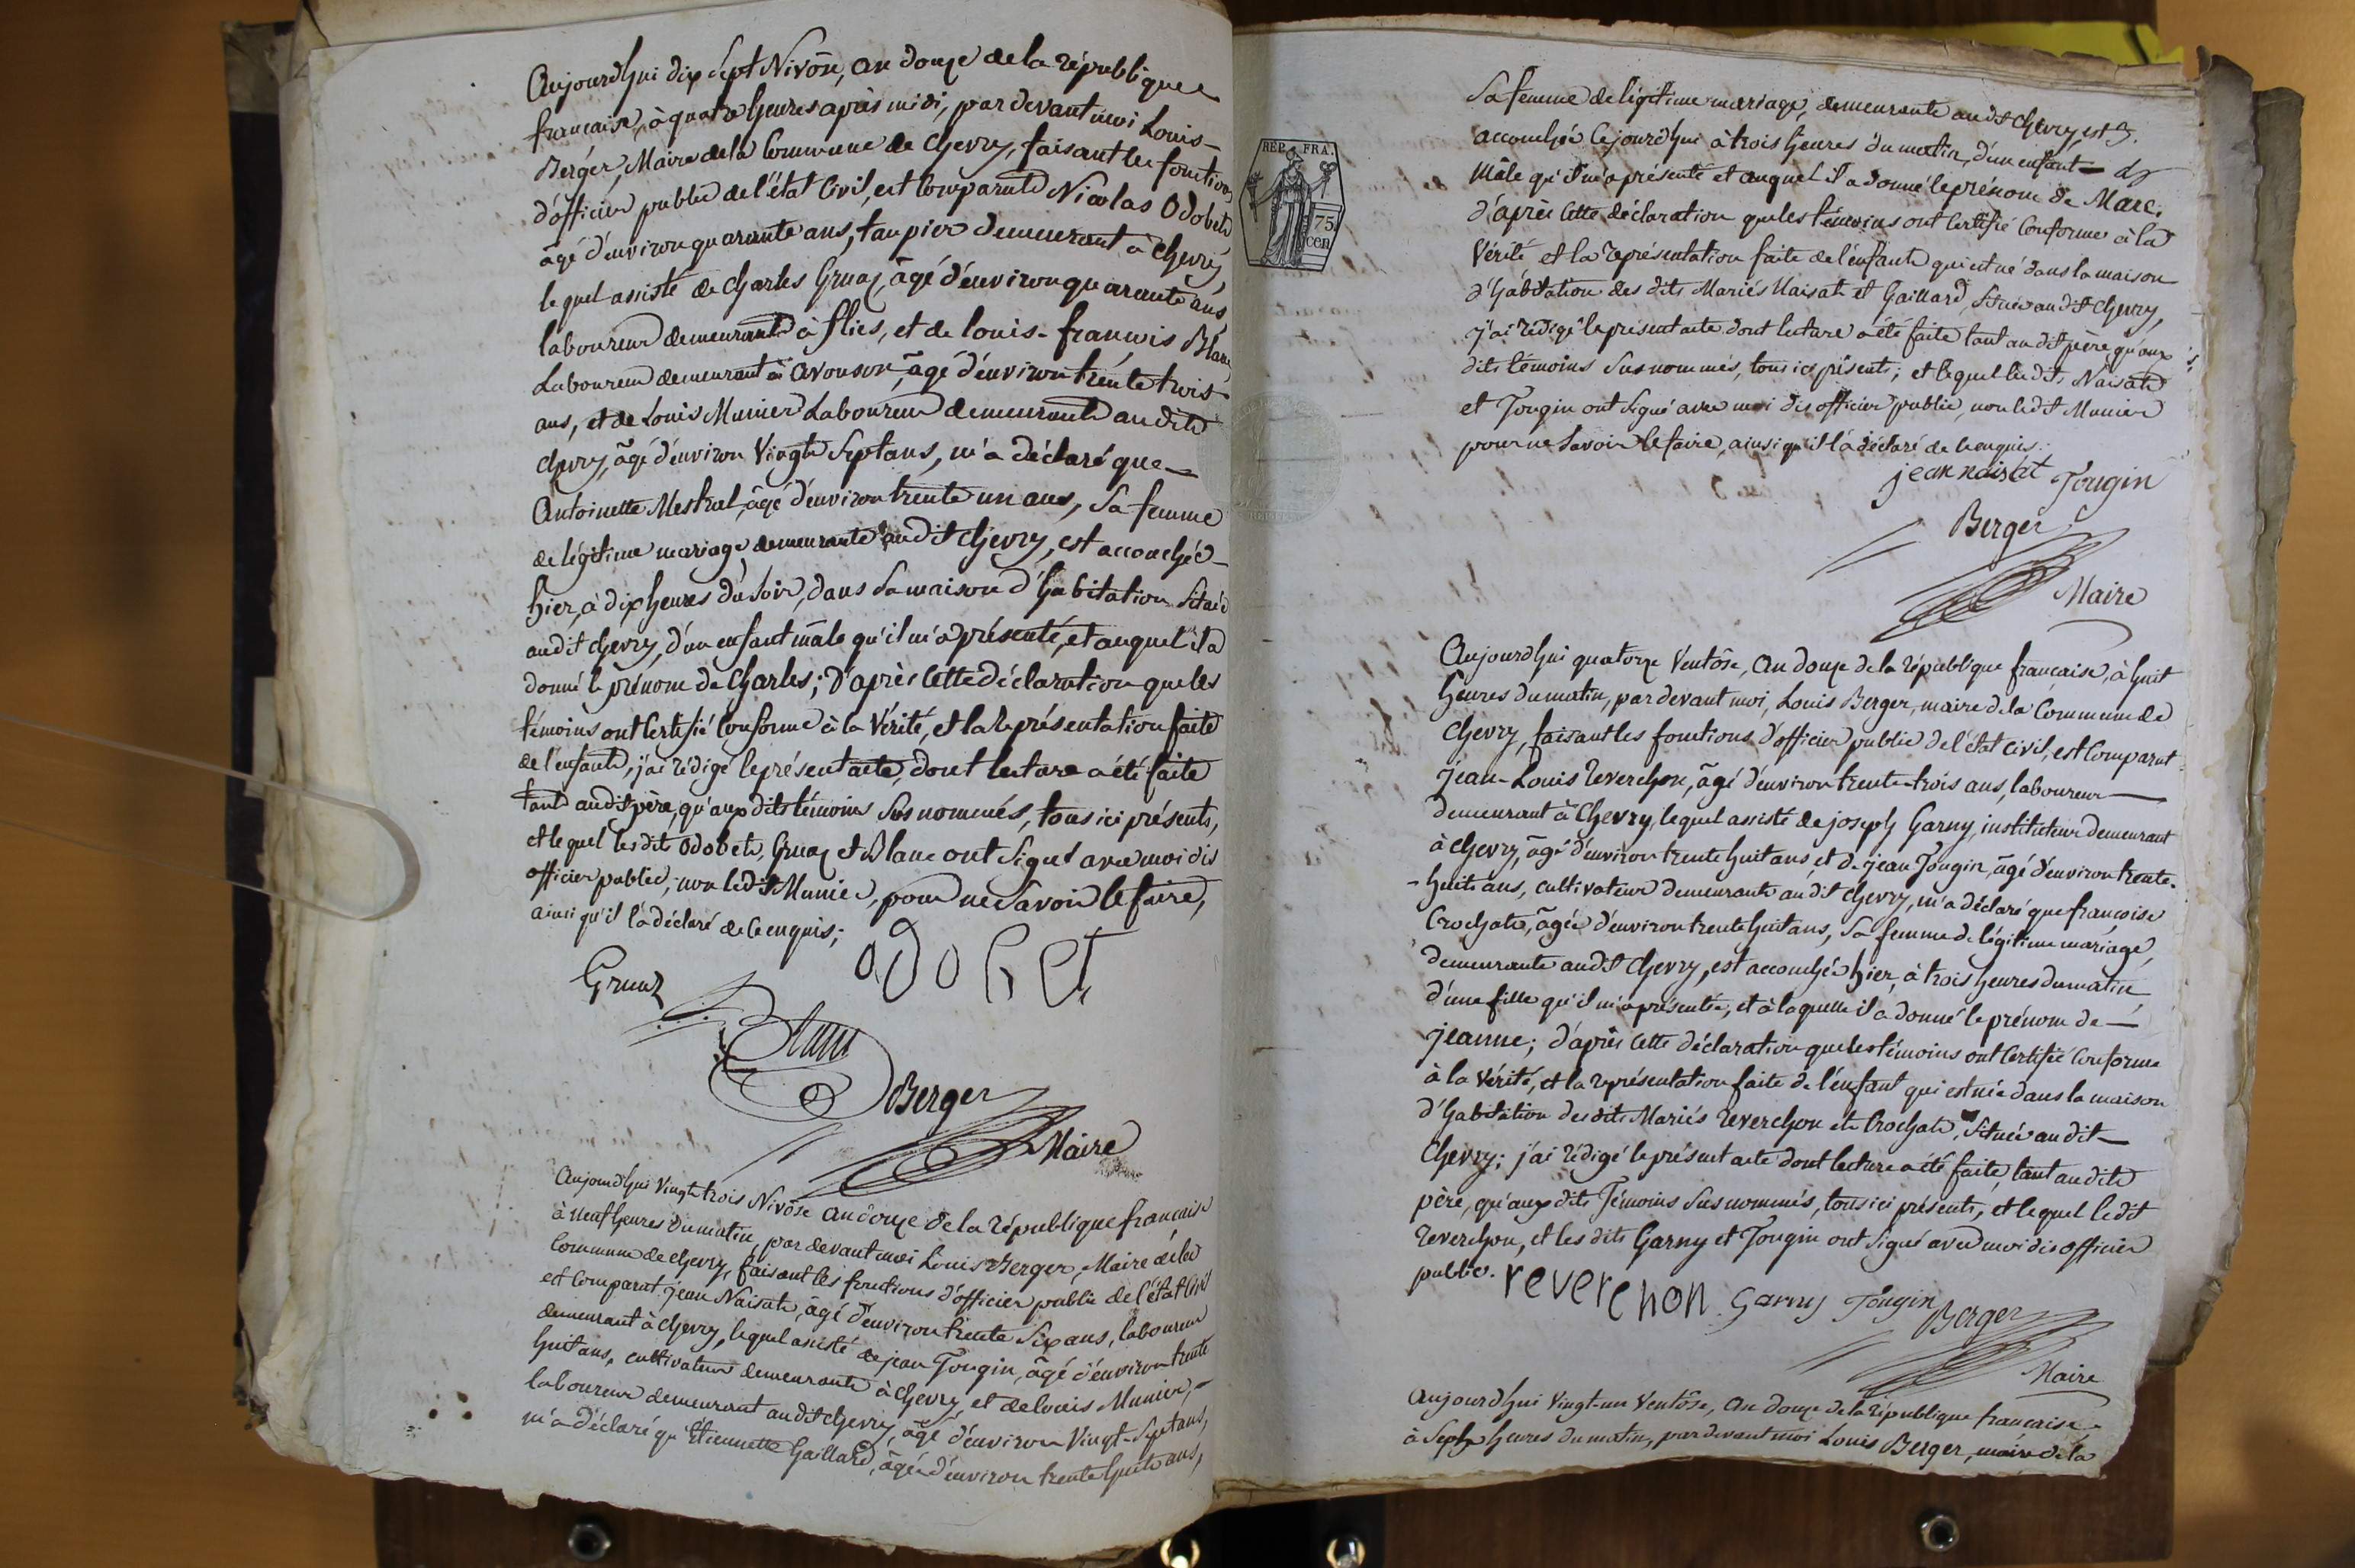 Aujourd'hui dix Sept Nivôse, an douze de la républiques
française, à quatre heures après midi, par devant moi Louis-
Berger, Maire de la Commune de Chevry, faisant les fonctions
d'officier public de l'état Civil, est Comparut Nicolas Odobet
âgé d'environ quarante ans, taupier demeurant à Chevry,
lequel assisté de Charles Gruaz, âgé d'environ quarante ans
laboureur demeurant à flies, et de louis-francois Blanc
Laboureur demeurant à avouson, âgé d'environ trente trois
ans, et de Louis Munier Laboureur demeurant audit
chevry, âgé d'environ Vingt Septans, m'a déclaré que
Antoinette Mestral, âgé d'environ trente un ans, Sa femme
de légitime mariage, demeurante audit chevry, est accouchée
hier, à dix heures du Soir, dans Sa maison d'habitation Située
audit chevry, d'un enfant mâle qu'il m'a présenté, et auquel il a
donné le prénom de Charles; D'après Cette déclaration que les
témoins ont Certifié Conforme à la Vérité, et la représentation faite
de l'enfant, j'ai rédigé le présent acte, dont lecture a été faite
tant audit père, qu'aux dits témoins Sus nommés, tous ici présents,
et lequel les dits Odobet, Gruaz et Blanc ont Signés avec moi dis
officier public, non ledit Munier, pour ne Savoir le faire,
ainsi qu'il l'a déclaré de ce enquis;
Gruaz
odobet
Blanc
Berger
Maire
Aujourd'hui Vingt trois Nivôse an douze de la république française
à neuf heures du matin, par devant moi Louis Berger, Maire de la
Commune de chevry, faisant les fonctions d'officier public de l'état Civil
est Comparut jean Naisat, âgé d'environ trente Six ans, laboureur
demeurant à chevry, lequel assisté de jean Tougin, âgé d'environ trente
huit ans, cultivateur demeurant à chevry et de louis Munier,
laboureur demeurant audit chevry, âgé d'environ Vingt-Septans,
m'a déclaré qu'Étiennette Gaillard, âgée d'environ trente huit ans,
REP. FRA.
75
cen
Sa femme de légitime mariage, demeurante audit chevry, est
accouchée Cejourd'hui à trois heures du matin, d'un enfant
Mâle qu'il m'a présenté et auquel il a donné le prénom de Marc.
d'après Cette déclaration que les témoins ont Certifié Conforme à la
Vérité et la représentation faite de l'enfant qui est né dans la maison
d'habitation des dits Mariés Naisat et Gaillard, Située audit Chevry,
j'ai rédigé le présent acte dont lecture a été faite tant audit père qu'aux
dits témoins Sus nommés, tous ici présents; et lequel les dits Naisat
et Tougin ont Signé avec moi dis officier public, non ledit Munier
pour ne Savoir le faire, ainsi qu'il l'a déclaré de ce enquis.
jean naisat Tougin
Berger
Maire
Aujourd'hui quatorze Ventôse, an douze de la république française, à huit
heures du matin, par devant moi, Louis Berger, maire de la Commune de
Chevry, faisant les fonctions d'officier public de l'état civil, est Comparut
jean-Louis reverchon, âgé d'environ trente-trois ans, laboureur
demeurant à Chevry, lequel assisté de joseph Garny, instituteur demeurant
à chevry, âgé d'environ trente huit ans, et de jean Tougin, âgé d'environ trente-
huit ans, cultivateur demeurant audit chevry, m'a déclaré que françoise
Crochat, âgée d'environ trente huit ans, Sa femme de légitime mariage,
demeurante audit chevry, est accouchée hier, à trois heures du matin
d'une fille qu'il m'a présentée, et à laquelle il a donné le prénom de
jeanne; d'après Cette déclaration que les témoins ont Certifié Conforme
à la Vérité, et la représentation faite de l'enfant qui est née dans la maison
d'habitation des dits Mariés reverchon et Crochat, Située audit
Chevry; j'ai rédigé le présent acte dont lecture a été faite, tant audit
père, qu'aux dits Témoins Sus nommés, tous ici présents, et lequel ledit
reverchon, et les dits Garny et Tougin ont Signé avec moi dis officier
public. reverchon Garny Tougin Berger
Maire
Aujourd'hui Vingt-un Ventôse, an douze de la république française,
à Sept heures du matin, par devant moi Louis Berger, maire de la